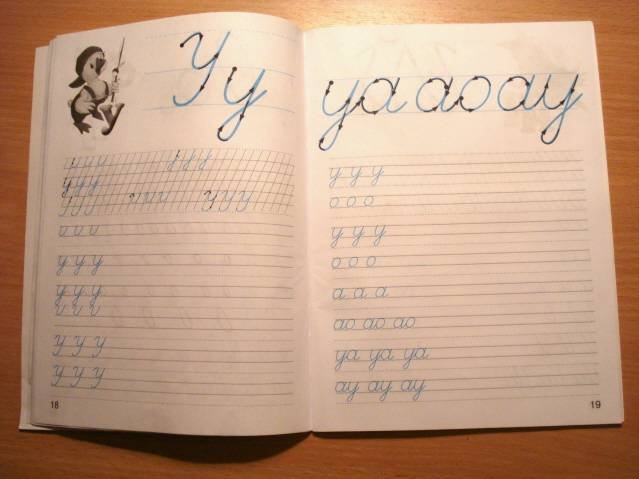 Уу
у у у
У У У
у у у
у у у
У У У
У У У
18
уа ао ау
у у у
о о о
у у у
о о о
а а а
ао ао ао
уа уа уа
ау ау ау
19